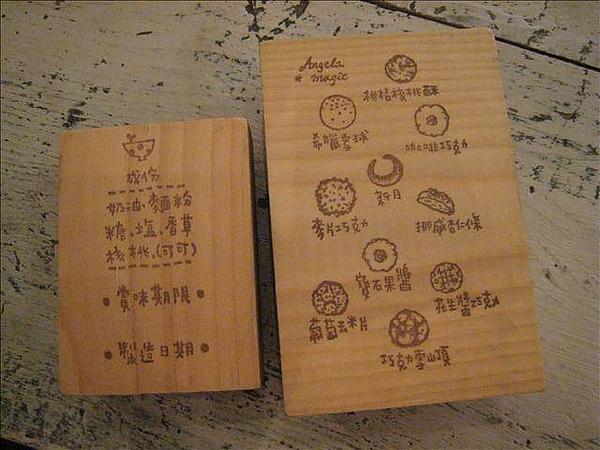 成份
奶油、麵粉
糖、塩、香草
核桃、(可可)
賞味期限
製造日期
Angela
magic
核桃酥
希臘雪球
咖啡巧克力
新月
麥片巧克力
挪威杏仁條
寶石果醬
葡萄玉米片
花生醬巧克力
巧克力雪山頂